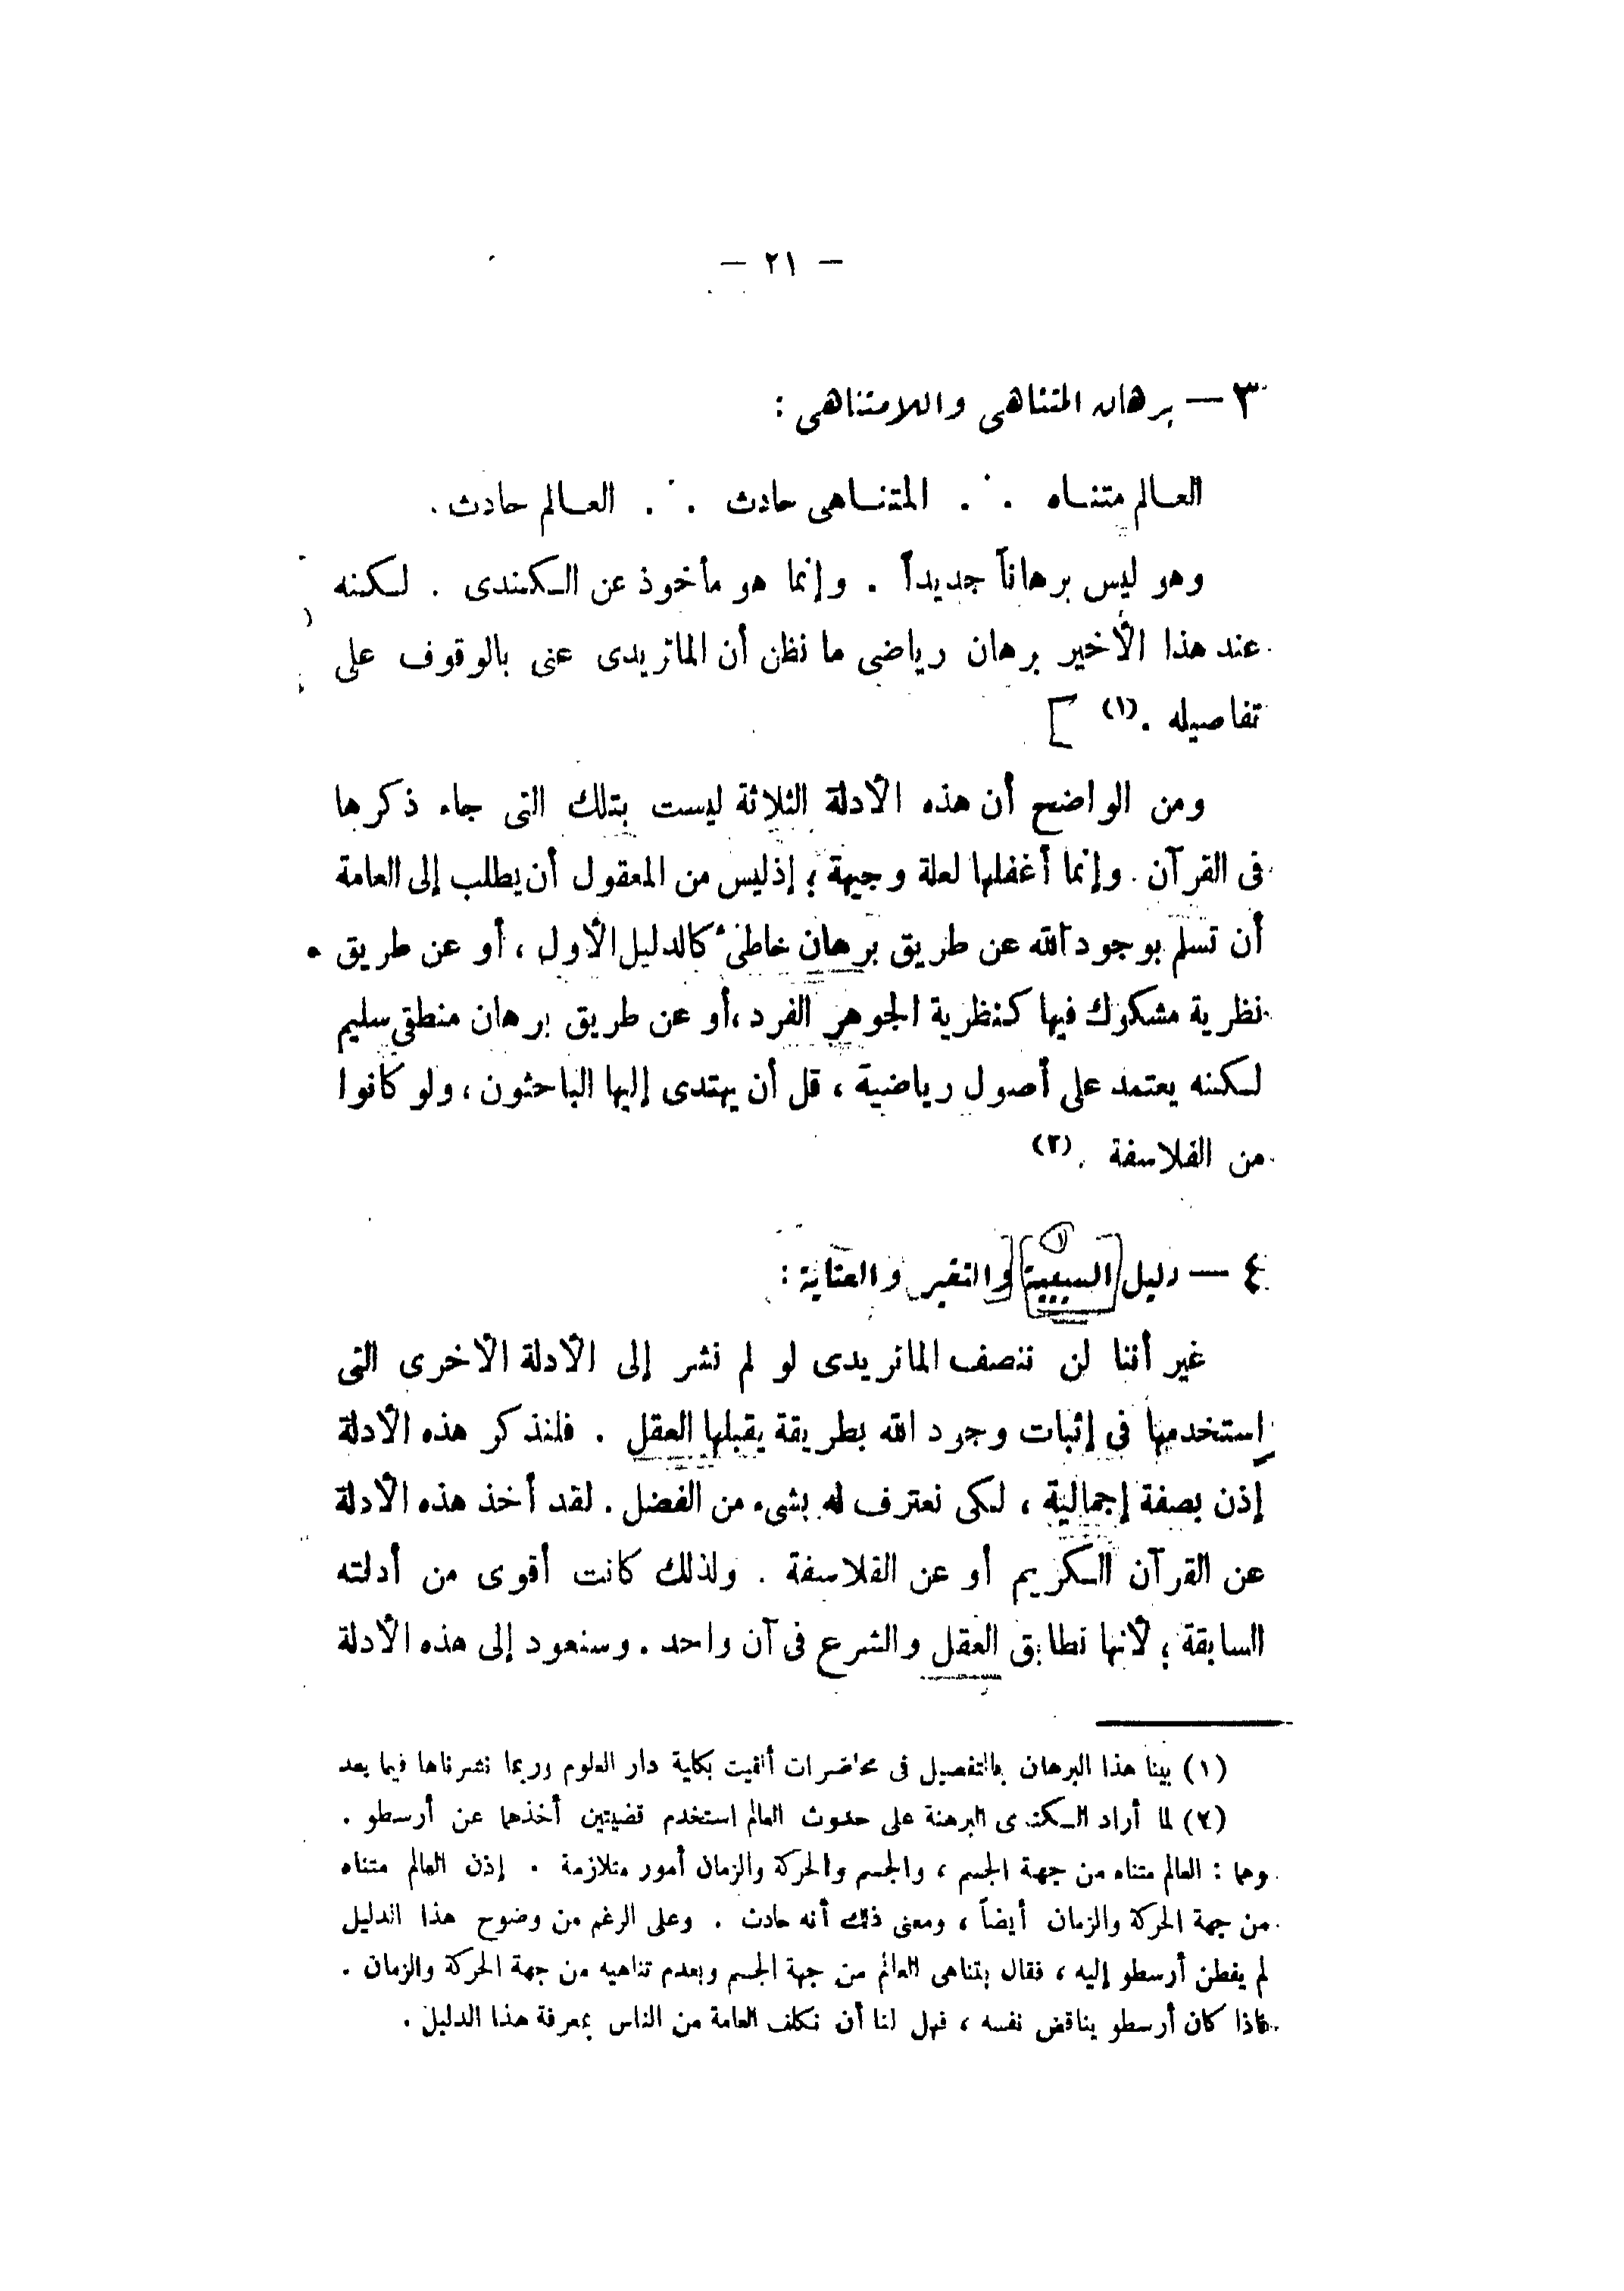 — ٢١ —
٣ — برهان المتناهى واللامتناهى :
العالم متناه . ٠ . المتناهى حادث . ٠ . العالم حادث .
وهو ليس برهاناً جديداً . وإنما هو مأخوذ عن الكندى . لكنه
عند هذا الأخير برهان رياضى ما نظن أن الماتريدى عنى بالوقوف على
تفاصيله . (١) ]
ومن الواضح أن هذه الأدلة الثلاثة ليست بتلك التى جاء ذكرها
فى القرآن . وإنما أغفلها لعلة وجيهة ؛ إذ ليس من المعقول أن يطلب إلى العامة
أن تسلم بوجود الله عن طريق برهان خاطئ كالدليل الأول ، أو عن طريق
نظرية مشكوك فيها كنظرية الجوهر الفرد ، أو عن طريق برهان منطقى سليم
لكنه يعتمد على أصول رياضية ، قل أن يهتدى إليها الباحثون ، ولو كانوا
من الفلاسفة . (٢)
٤ — دليل [السببية] (١) والتغير والعناية :
غير أننا لن ننصف الماتريدى لو لم نشر إلى الأدلة الأخرى التى
إستخدمها فى إثبات وجود الله بطريقة يقبلها العقل . فلنذكر هذه الأدلة
إذن بصفة إجمالية ، لكى نعترف له بشىء من الفضل . لقد أخذ هذه الأدلة
عن القرآن الكريم أو عن الفلاسفة . ولذلك كانت أقوى من أدلته
السابقة ؛ لأنها تطابق العقل والشرع فى آن واحد . وسنعود إلى هذه الأدلة
(١) بينا هذا البرهان بالتفصيل فى محاضرات ألقيت بكلية دار العلوم وربما نشرناها فيما بعد
(٢) لما أراد الكندى البرهنة على حدوث العالم استخدم قضيتين أخذهما عن أرسطو .
وهما : العالم متناه من جهة الجسم ، والجسم والحركة والزمان أمور متلازمة . إذن العالم متناه
من جهة الحركة والزمان أيضاً ، ومعنى ذلك أنه حادث . وعلى الرغم من وضوح هذا الدليل
لم يفطن أرسطو إليه ، فقال بتناهى العالم من جهة الجسم وبعدم تناهيه من جهة الحركة والزمان .
فإذا كان أرسطو يناقض نفسه ، فهل لنا أن نكلف العامة من الناس بمعرفة هذا الدليل .